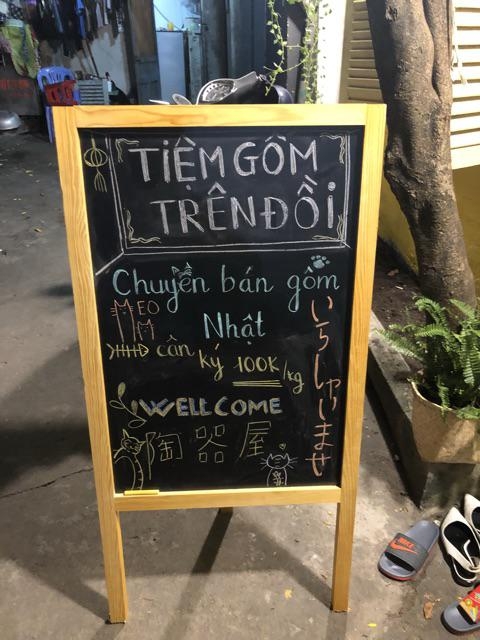 TIỆM GỐM
TRÊN ĐỒI
Chuyên bán gốm
Nhật
MEO
M
cân ký 100K/kg
いらしゃいませ
WELLCOME
陶器屋